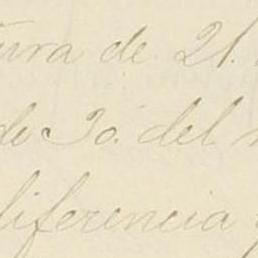 tura de 21.
de 30. del
diferencia